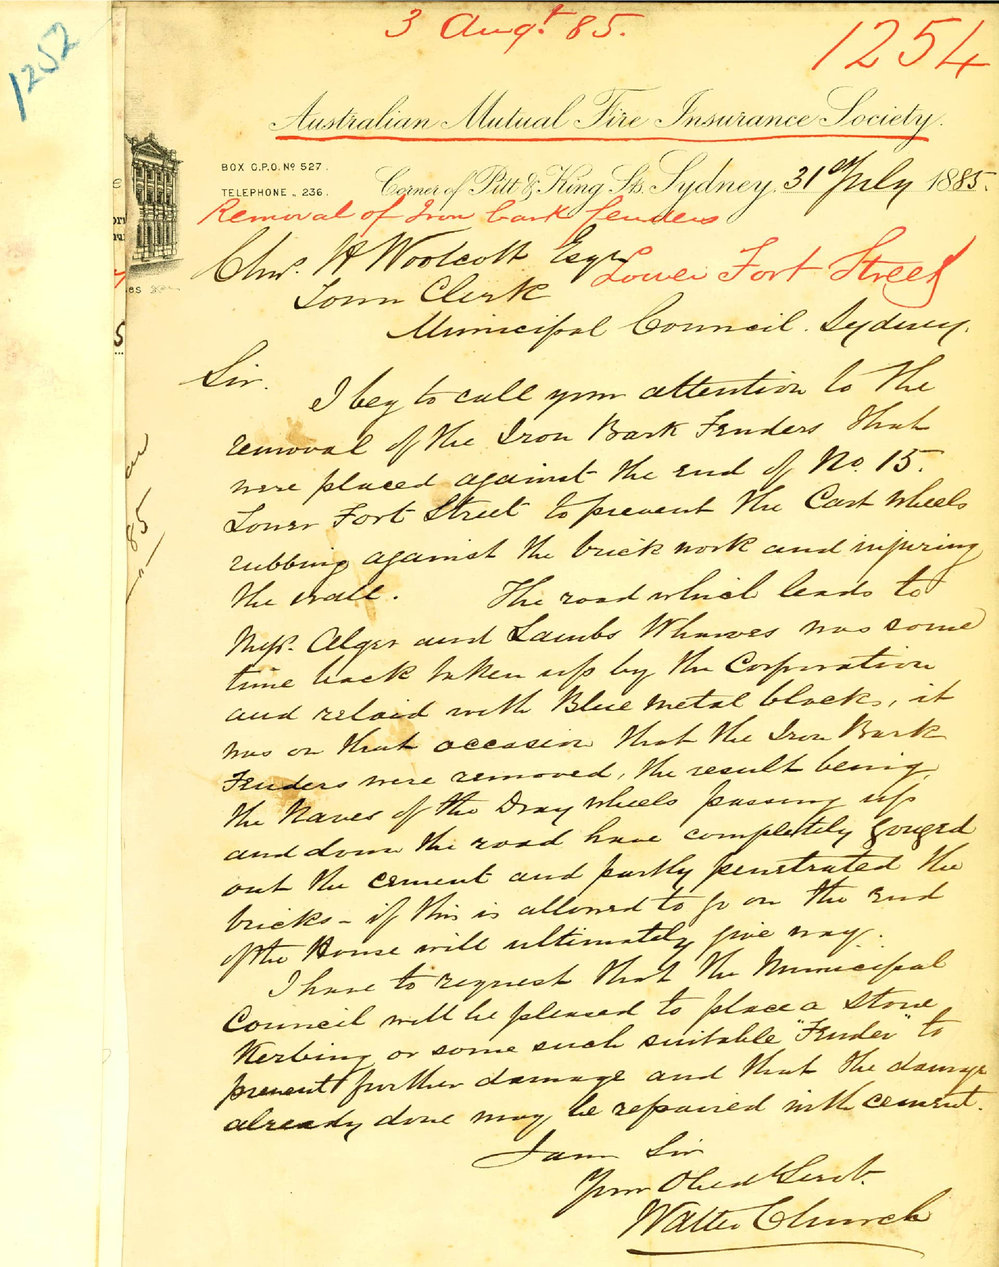 1252
3 Augt. 85.
1254
Australian Mutual Fire Insurance Society.
BOX G.P.O. No 527.
TELEPHONE „ 236.
Corner of Pitt & King Sts. Sydney, 31 of July 1885.
Removal of Iron bark fenders
Lower Fort Street
Chas. H Woolcott Esqr
Town Clerk
Municipal Council. Sydney.
Sir.
I beg to call your attention to the
removal of the Iron Bark Fenders that
were placed against the end of No. 15.
Lower Fort Street to prevent the Cart wheels
rubbing against the brick work and injuring
the wall. The road which leads to
Messrs. Alger and Lambs Wharves was some
time back taken up by the Corporation
and relaid with Blue metal blocks, it
was on that occasion that the Iron Bark
Fenders were removed, the result being,
the Naves of the Dray wheels passing up
and down the road have completely gouged
out the cement and partly penetrated the
bricks – if this is allowed to go on the end
of the House will ultimately give way.
I have to request that the Municipal
Council will be pleased to place a stone
Kerbing or some such suitable "Fender" to
prevent further damage and that the damage
already done may be repaired with cement.
I am Sir
Your Obedt Servt.
Walter Church
85